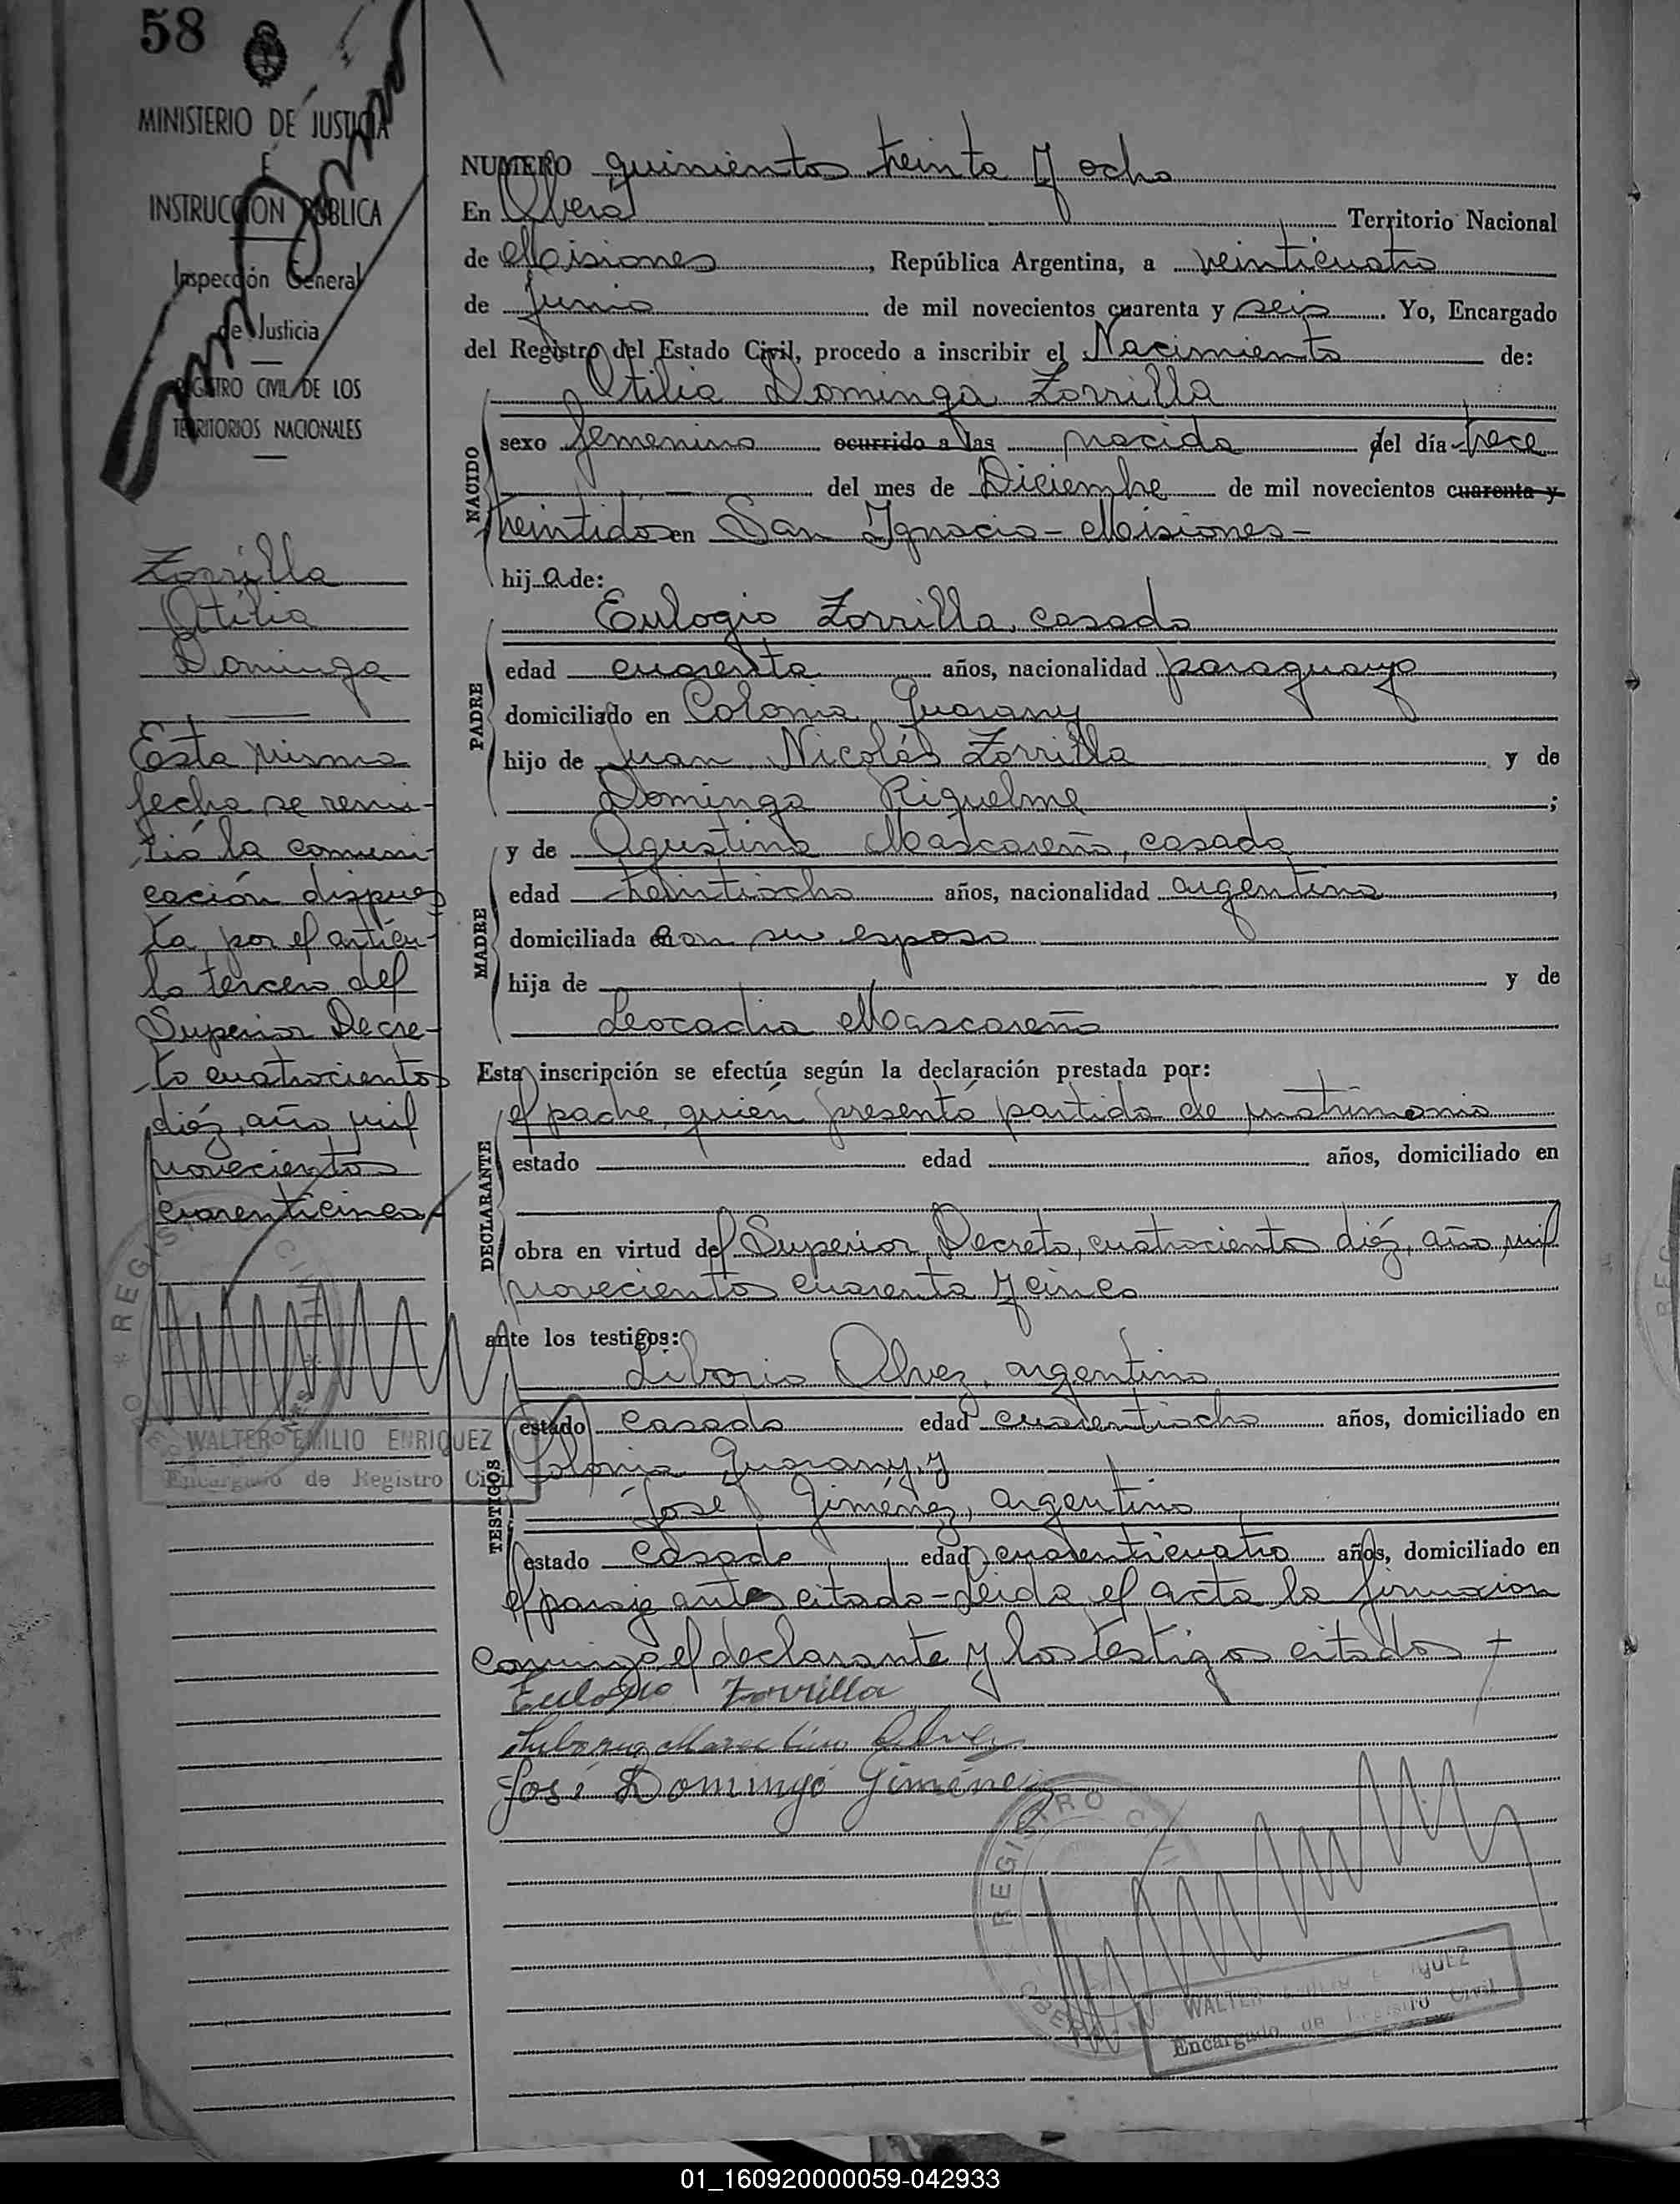 58
MINISTERIO DE JUSTICIA
E
INSTRUCCION PUBLICA
Inspección General
de Justicia
REGISTRO CIVIL DE LOS
TERRITORIOS NACIONALES
Zorrilla
Otilia
Dominga
Esta misma
fecha se remi-
tió la comuni-
cación dispues
ta por el artícu-
lo tercero del
Superior Decre-
to cuatrocientos
diéz, año mil
novecientos
cuarenticinco
REGISTRO CIVIL
WALTER EMILIO ENRIQUEZ
Encargado de Registro Civil
NUMERO quinientos treinta y ocho
En Oberá Territorio Nacional
de Misiones, República Argentina, a veinticuatro
de junio de mil novecientos cuarenta y seis. Yo, Encargado
del Registro del Estado Civil, procedo a inscribir el Nacimiento de:
Otilia Dominga Zorrilla
NACIDO
sexo femenino ocurrido a las nacida del día trece
del mes de Diciembre de mil novecientos cuarenta y
treintidos en San Ignacio - Misiones -
hij a de:
PADRE
Eulogio Zorrilla, casado
edad cuarenta años, nacionalidad paraguayo,
domiciliado en Colonia Guarany
hijo de Juan Nicolás Zorrilla y de
Dominga Riquelme;
MADRE
y de Agustina Mascareño, casada
edad treintiocho años, nacionalidad argentina,
domiciliada con su esposo
hija de y de
Leocadia Mascareño
Esta inscripción se efectúa según la declaración prestada por:
DECLARANTE
el padre, quién presentó partida de matrimonio
estado edad años, domiciliado en
obra en virtud del Superior Decreto, cuatrocientos diéz, año mil
novecientos cuarenta y cinco
ante los testigos:
TESTIGOS
Liborio Alvez, argentino
estado casado edad cuarentiocho años, domiciliado en
Colonia Guarany, y
José Giménez, argentino
estado casado edad cuarenticuatro años, domiciliado en
el paraje antes citado - Leida el acta la firmaron
conmigo el declarante y los testigos citados
Eulogio Zorrilla
Alvez
José Domingo Giménez
REGISTRO CIVIL
OBERA
WALTER EMILIO ENRIQUEZ
Encargado de Registro Civil
01_160920000059-042933